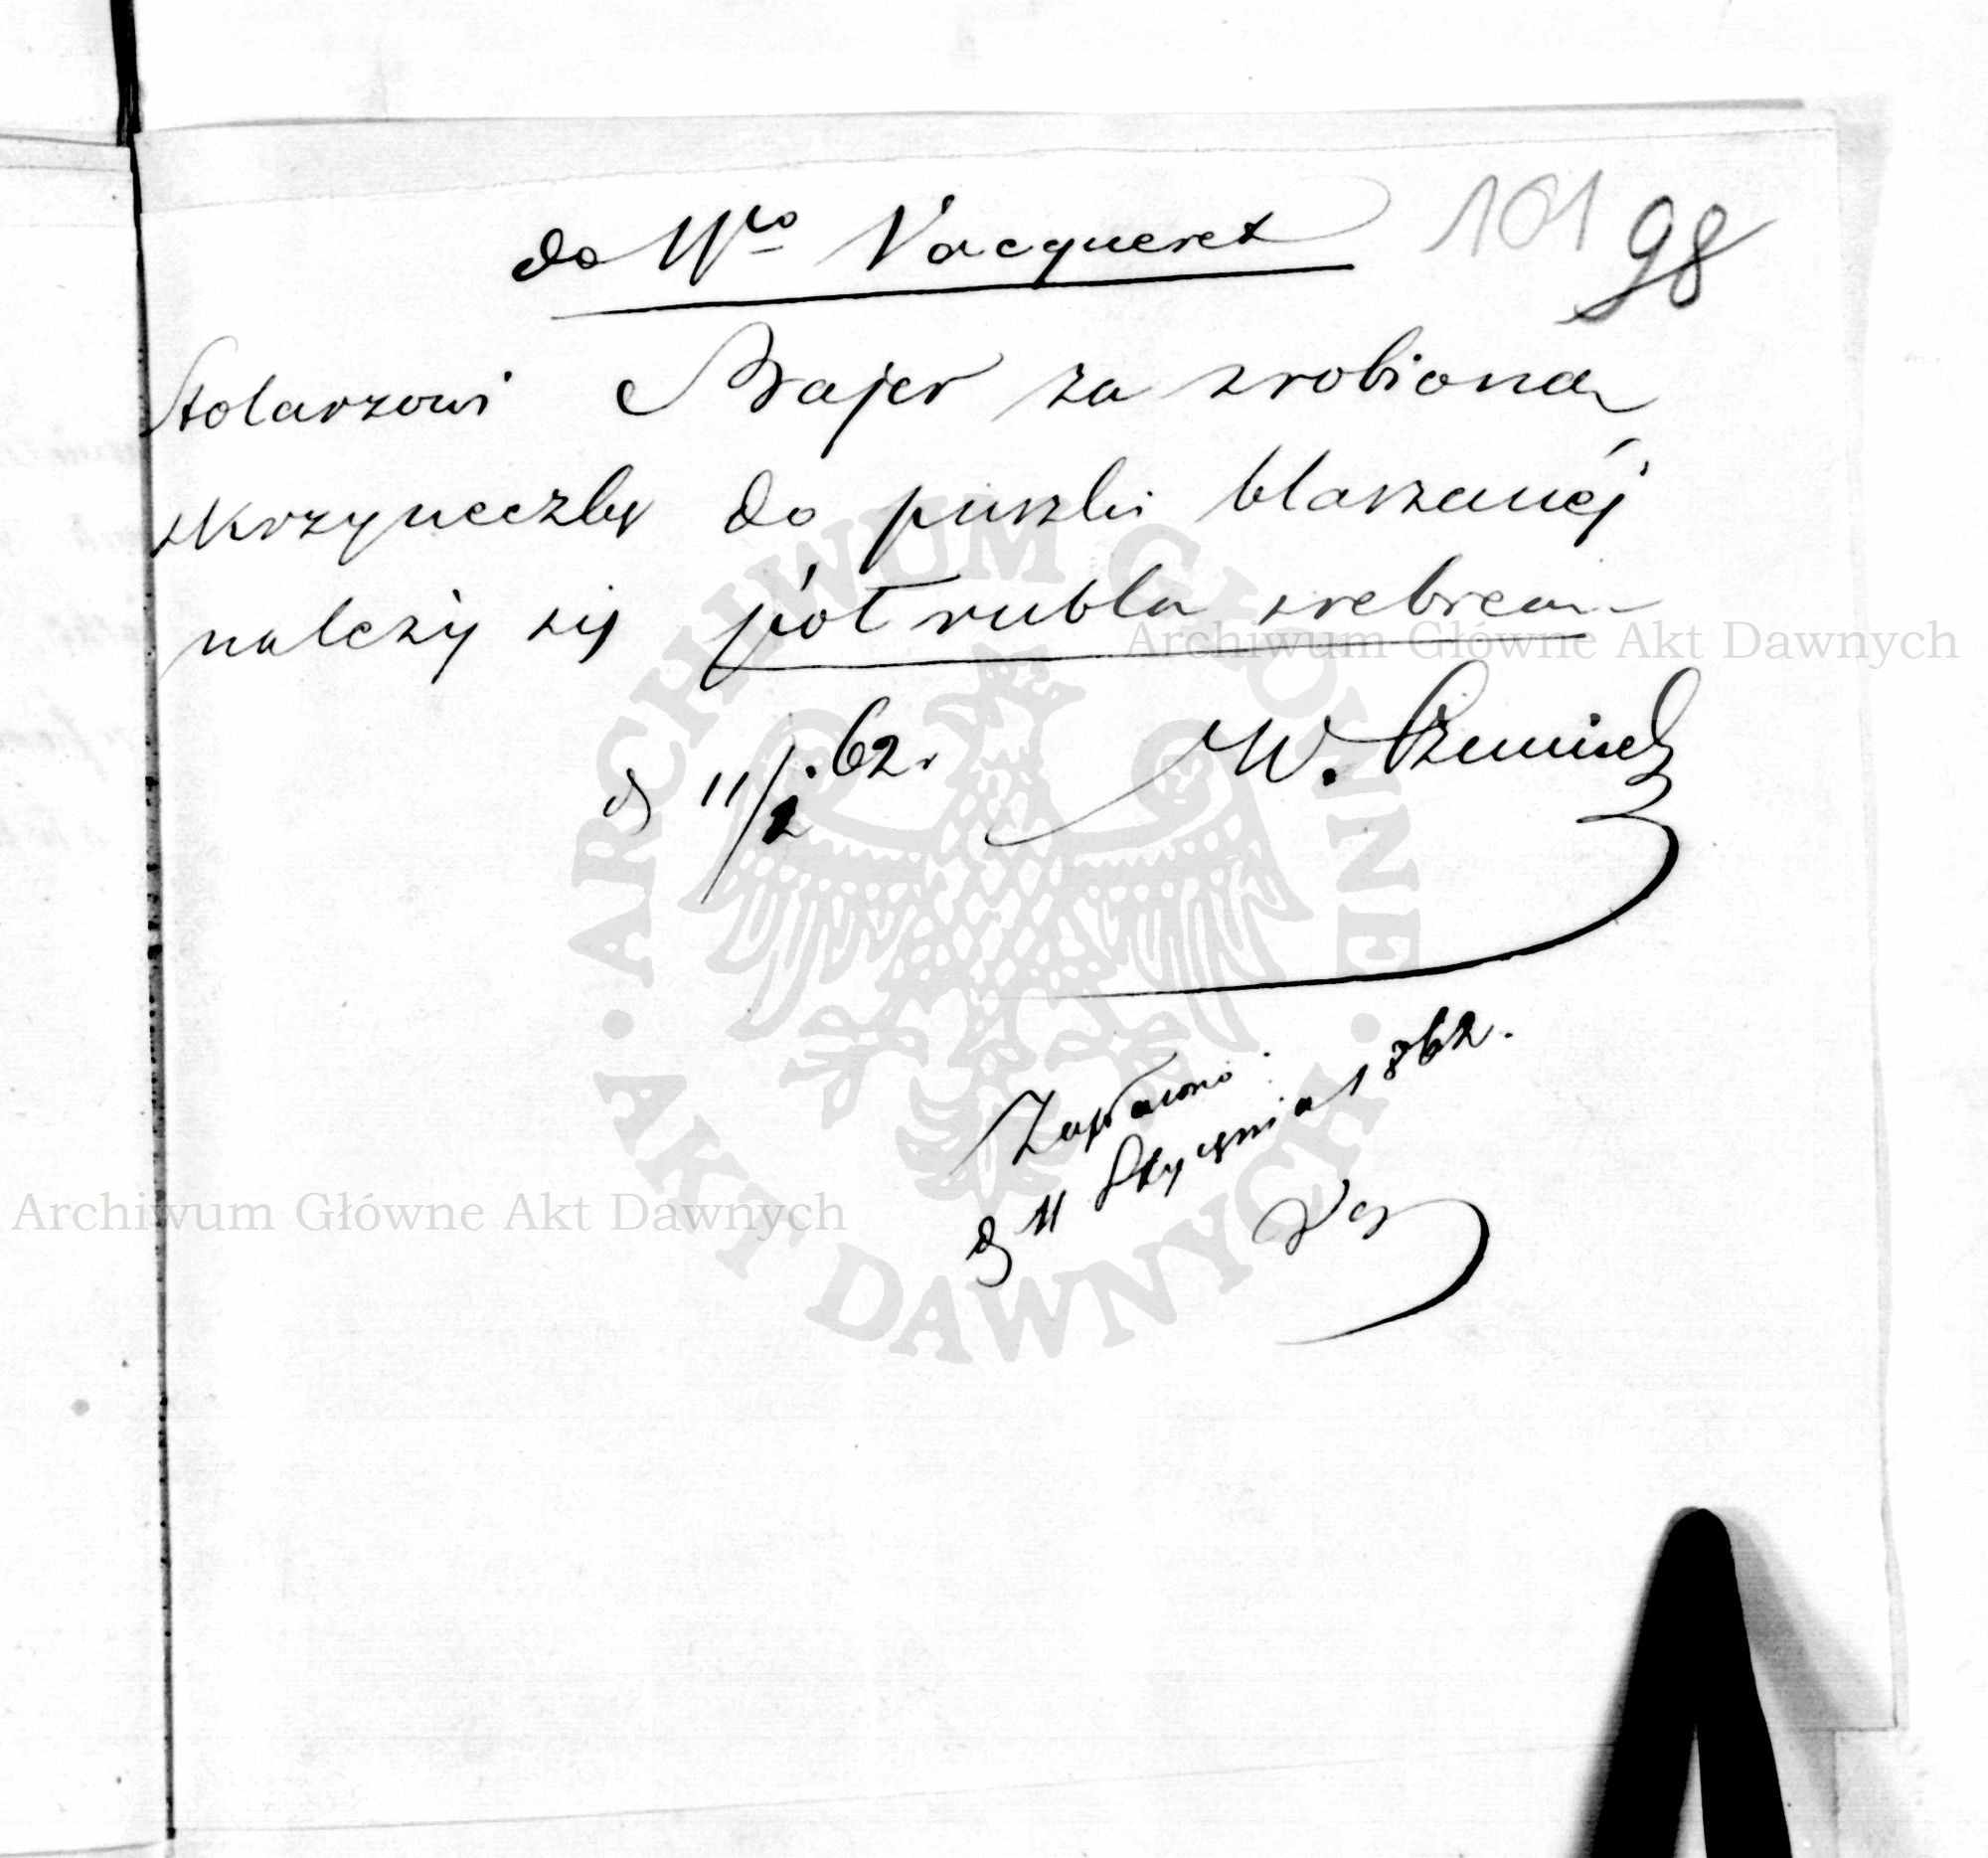 101 98
do Wgo Vacqueret
Stolarzowi Brajer za zrobioną
skrzyneczkę do puszki blaszanéj
należy się pół rubla srebrem
d 11/1 62r
W.
Zapłacono
d 11 Stycznia 1862.
Archiwum Główne Akt Dawnych
Archiwum Główne Akt Dawnych
ARCHIWUM GŁÓWNE AKT DAWNYCH